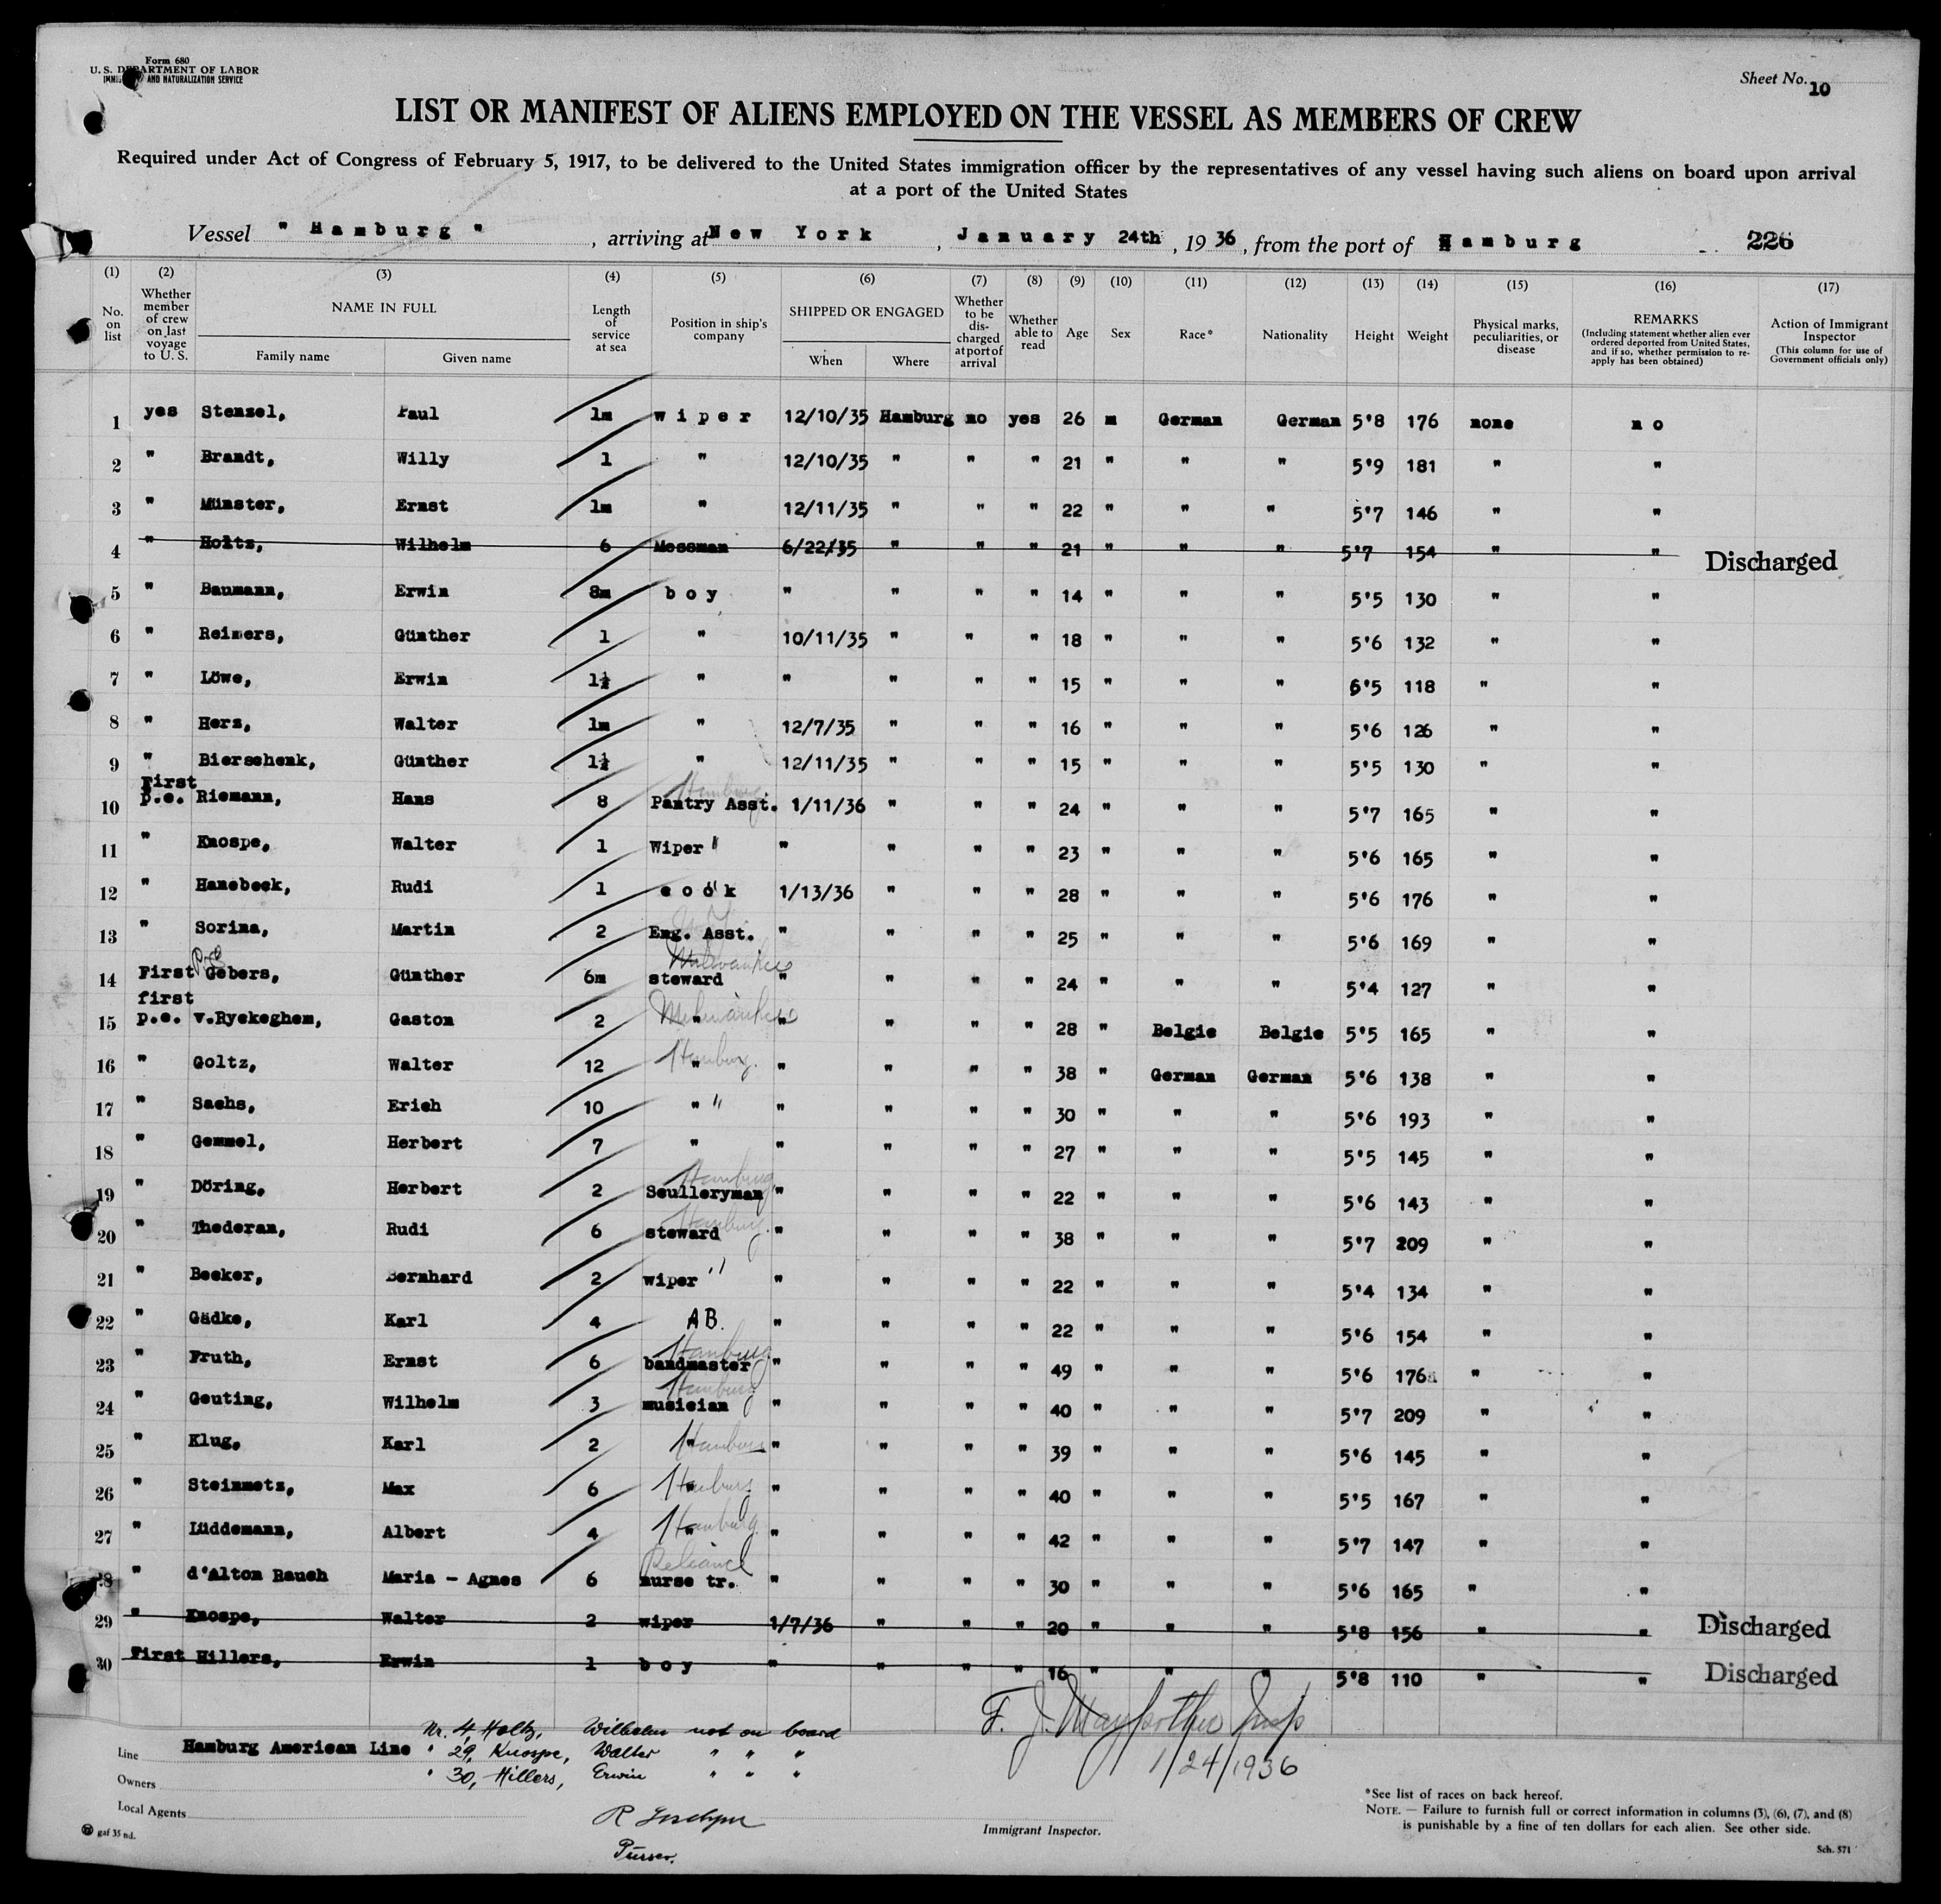 Form 680
U. S. DEPARTMENT OF LABOR
IMMIGRATION AND NATURALIZATION SERVICE
Sheet No. 10
LIST OR MANIFEST OF ALIENS EMPLOYED ON THE VESSEL AS MEMBERS OF CREW
Required under Act of Congress of February 5, 1917, to be delivered to the United States immigration officer by the representatives of any vessel having such aliens on board upon arrival
at a port of the United States
Vessel " Hamburg " , arriving at New York , January 24th , 19 36 , from the port of Hamburg 226
(1) (2) (3) (4) (5) (6) (7) (8) (9) (10) (11) (12) (13) (14) (15) (16) (17)
No. on list
Whether member of crew on last voyage to U. S.
NAME IN FULL
Family name Given name
Length of service at sea
Position in ship's company
SHIPPED OR ENGAGED
When Where
Whether to be discharged at port of arrival
Whether able to read
Age
Sex
Race*
Nationality
Height
Weight
Physical marks, peculiarities, or disease
REMARKS
(Including statement whether alien ever ordered deported from United States, and if so, whether permission to re-apply has been obtained)
Action of Immigrant Inspector
(This column for use of Government officials only)
1 yes Stenzel, Paul 1m wiper 12/10/35 Hamburg no yes 26 m German German 5'8 176 none no
2 " Brandt, Willy 1 " 12/10/35 " " " 21 " " " 5'9 181 " "
3 " Münster, Ernst 1m " 12/11/35 " " " 22 " " " 5'7 146 " "
4 " Holtz, Wilhelm 6 Messman 6/22/35 " " " 21 " " " 5'7 154 " " Discharged
5 " Baumann, Erwin 8m boy " " " " 14 " " " 5'5 130 " "
6 " Reimers, Günther 1 " 10/11/35 " " " 18 " " " 5'6 132 " "
7 " Löwe, Erwin 1½ " " " " " 15 " " " 6'5 118 " "
8 " Herz, Walter 1m " 12/7/35 " " " 16 " " " 5'6 126 " "
9 " Bierschenk, Günther 1½ " 12/11/35 " " " 15 " " " 5'5 130 " "
First Hamburg
10 p.e. Riemann, Hans 8 Pantry Asst. 1/11/36 " " " 24 " " " 5'7 165 " "
11 " Knospe, Walter 1 Wiper " " " " " 23 " " " 5'6 165 " "
12 " Hanebeck, Rudi 1 cook " 1/13/36 " " " 28 " " " 5'6 176 " "
13 " Sorina, Martin 2 Eng. Asst. " " " " 25 " " " 5'6 169 " "
Milwaukee
14 First Gebers, Günther 6m steward " " " " 24 " " " 5'4 127 " "
first Milwaukee
15 p.e. v.Ryckeghem, Gaston 2 " " " " " 28 " Belgie Belgie 5'5 165 " "
Hamburg
16 " Goltz, Walter 12 " " " " " 38 " German German 5'6 138 " "
17 " Sachs, Erich 10 " " " " " " 30 " " " 5'6 193 " "
18 " Gemmel, Herbert 7 " " " " " 27 " " " 5'5 145 " "
Hamburg
19 " Döring, Herbert 2 Sculleryman " " " " 22 " " " 5'6 143 " "
Hamburg
20 " Thederan, Rudi 6 steward " " " " 38 " " " 5'7 209 " "
21 " Becker, Bernhard 2 wiper " " " " " 22 " " " 5'4 134 " "
22 " Gädke, Karl 4 AB. " " " " 22 " " " 5'6 154 " "
Hamburg
23 " Fruth, Ernst 6 bandmaster " " " " 49 " " " 5'6 176 " "
Hamburg
24 " Geuting, Wilhelm 3 musician " " " " 40 " " " 5'7 209 " "
25 " Klug, Karl 2 " Hamburg " " " " 39 " " " 5'6 145 " "
26 " Steinmetz, Max 6 " Hamburg " " " " 40 " " " 5'5 167 " "
27 " Lüddemann, Albert 4 " Hamburg " " " " 42 " " " 5'7 147 " "
Reliance
28 " d'Alton Rauch Maria - Agnes 6 nurse tr. " " " " 30 " " " 5'6 165 " "
29 " Knospe, Walter 2 wiper 1/7/36 " " " 20 " " " 5'8 156 " " Discharged
30 First Hillers, Erwin 1 boy " " " " 16 " " " 5'8 110 " " Discharged
Nr. 4, Holtz, Wilhelm not on board
Line Hamburg American Line " 29, Knospe, Walter " " "
" 30, Hillers, Erwin " " "
F. J. Insp
1/24/1936
Owners
Local Agents
R
Purser.
Immigrant Inspector.
*See list of races on back hereof.
NOTE. — Failure to furnish full or correct information in columns (3), (6), (7), and (8)
is punishable by a fine of ten dollars for each alien. See other side.
gaf 35 nd.
Sch. 571